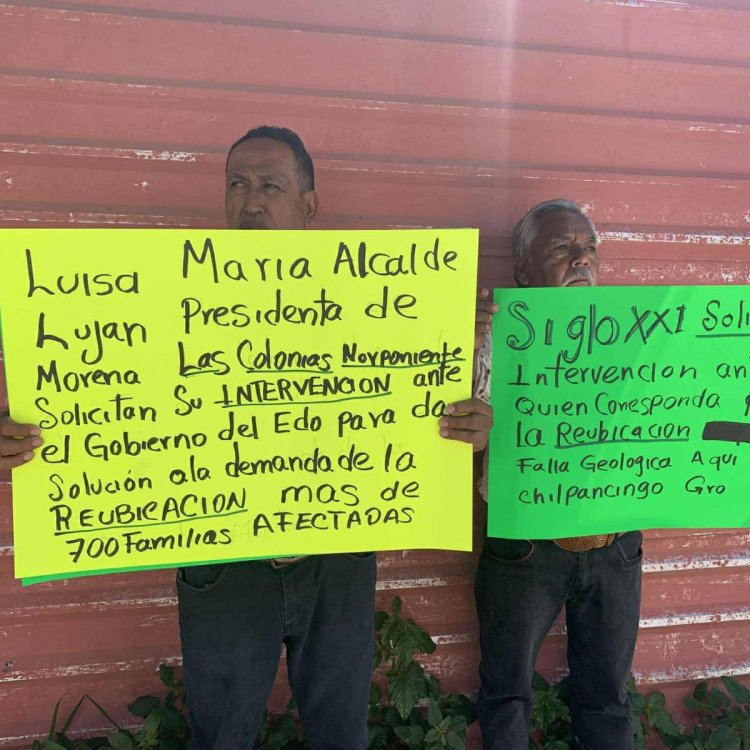 Luisa Maria Alcalde
Lujan Presidenta de
Morena Las Colonias Norponiente
Solicitan Su INTERVENCION ante
el Gobierno del Edo para da
Solución a la demanda de la
REUBICACION mas de
700 Familias AFECTADAS
Siglo XXI Soli
Intervencion an
Quien Corresponda
la Reubicacion
Falla Geologica Aqui
chilpancingo Gro